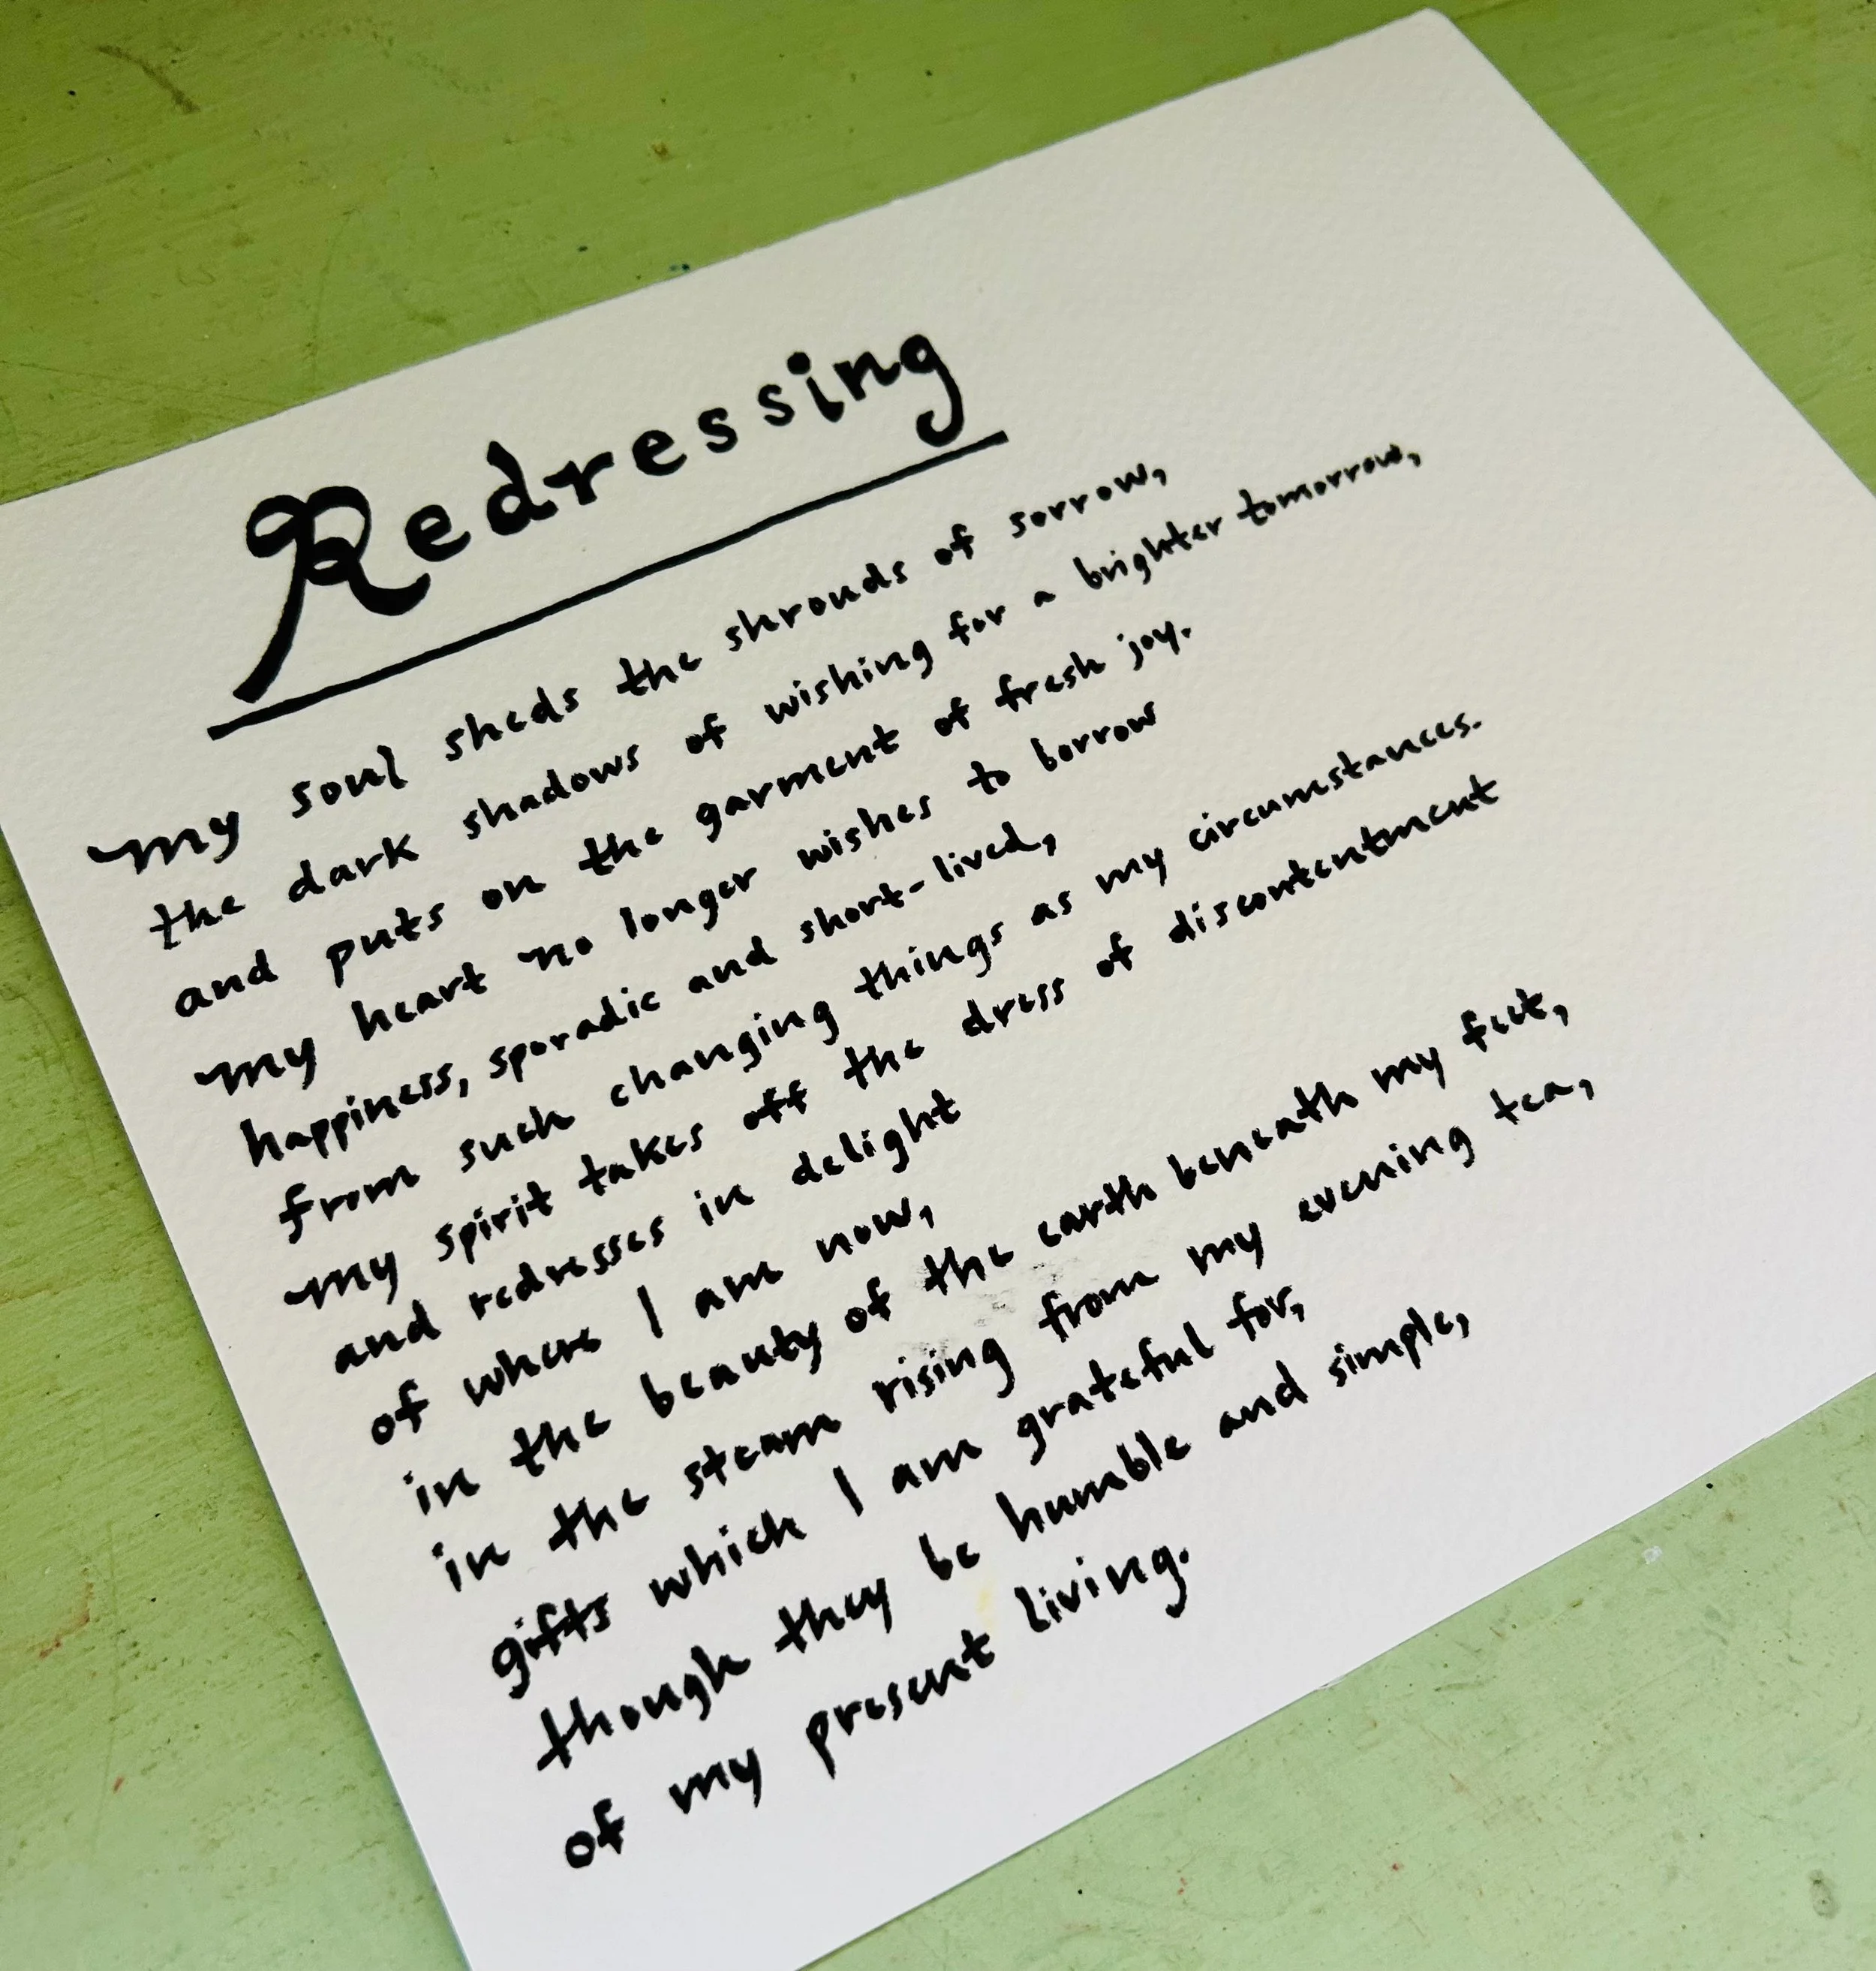 Redressing
My soul sheds the shrouds of sorrow,
the dark shadows of wishing for a brighter tomorrow,
and puts on the garment of fresh joy.
My heart no longer wishes to borrow
happiness, sporadic and short-lived,
from such changing things as my circumstances.
My spirit takes off the dress of discontentment
and redresses in delight
of where I am now,
in the beauty of the earth beneath my feet,
in the steam rising from my evening tea,
gifts which I am grateful for,
though they be humble and simple,
of my present living.